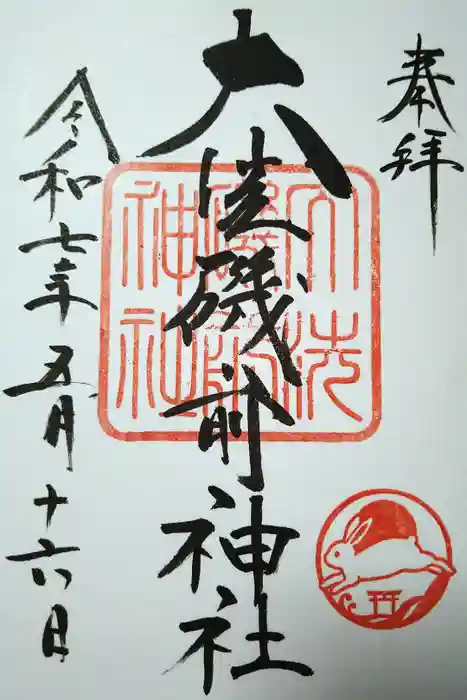 奉拝
大洗磯前神社
大洗
磯前
神社
令和七年五月十六日